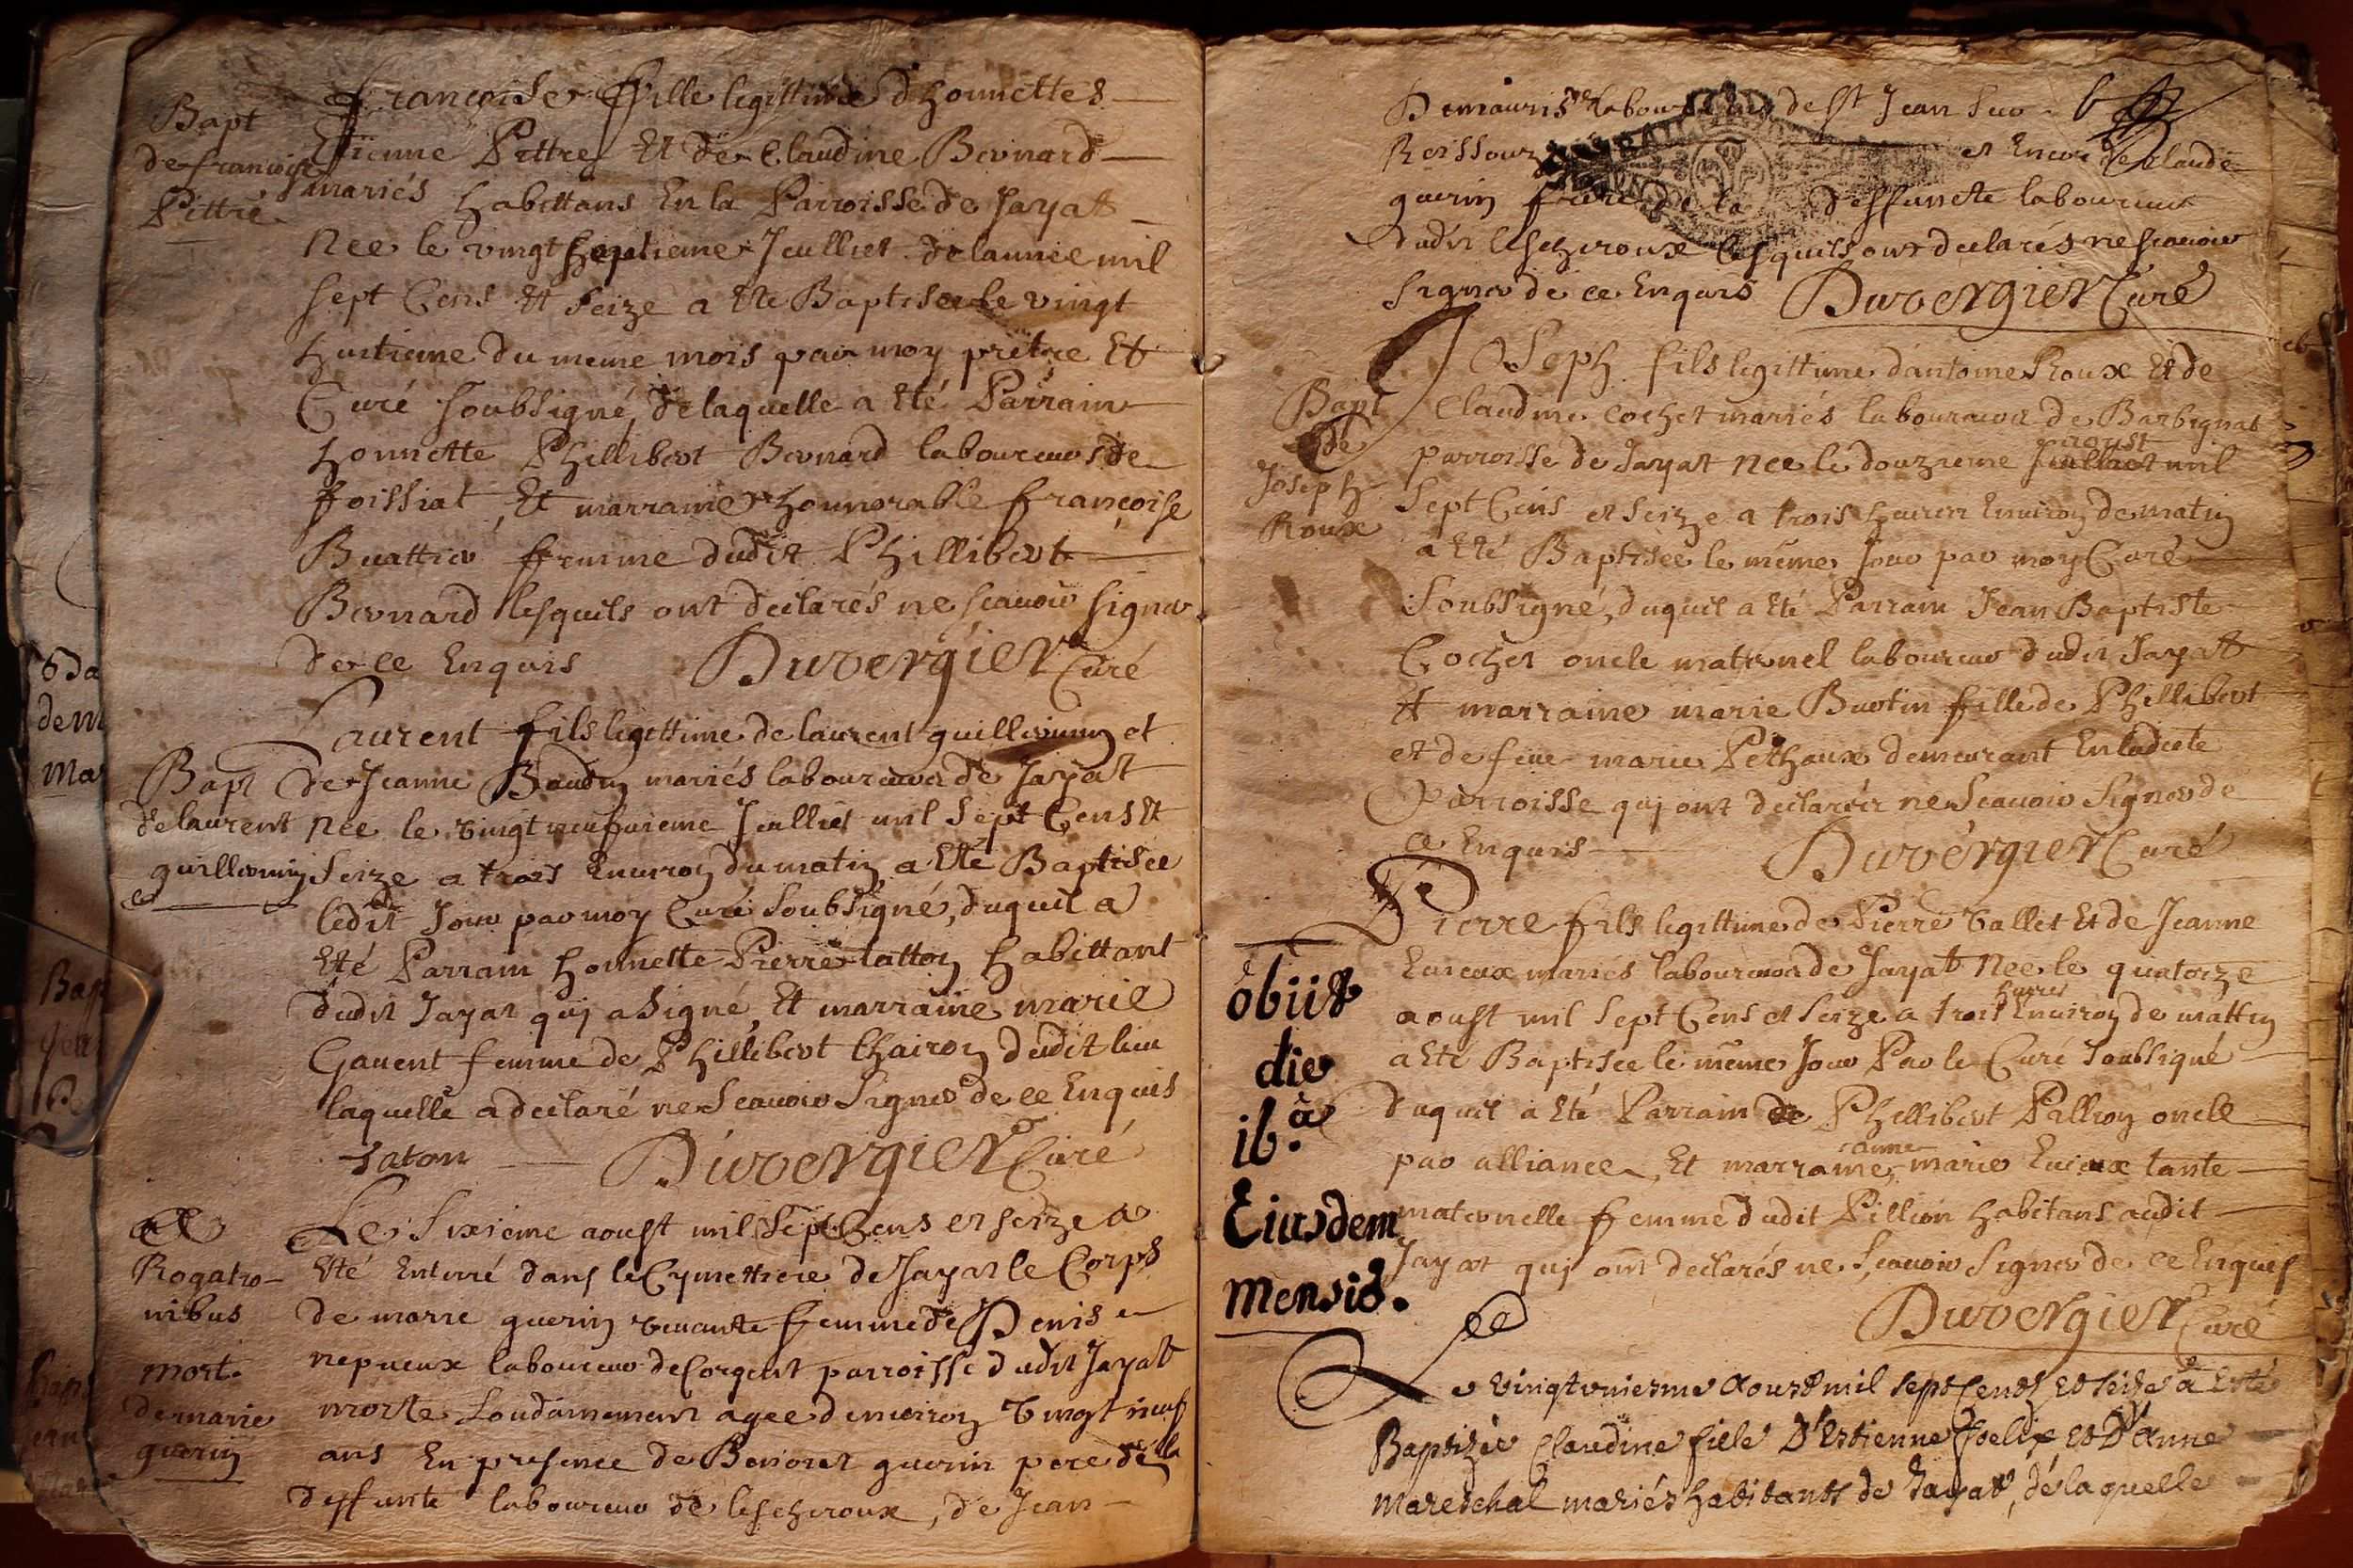 Bapt
de françoise
Pittre
françoise fille legittime d'honnettes
Etienne Pittre Et de Claudine Bevnard
mariés habittans En la Parroisse de Jayat
Nee le vingt septieme Jeulliet de lannee mil
sept Cens Et seize a Ete Baptisee le vingt
huitieme du meme mois par moy prètre Et
Curé soubsigné, de laquelle a Eté Parrain
honnette Phillibert Bevnard laboureur de
foissiat, Et marraine honnorable françoise
femme dudit Phillibert
Bevnard lesquels ont déclarés ne scauoir signer
de ce Enquis Duvergier Curé
Bapt
de laurent
guillermin
Laurent fils legittime de laurent guillermin et
de Jeanne Baudin mariés laboureurs de Jayat
Nee le vingt neufuieme Jeulliet mil sept Cens Et
seize a trois Enuiron du matin a Eté Baptisee
ledit Jour par moy Curé soubsigné, duquel a
Eté Parrain honnette Pierre tatton habittant
dudit Jayat quj a signé Et marraine marie
Gauent femme de Phillibert Chairon dudit lieu
laquelle a déclaré ne Scauoir Signer de ce Enquis
taton Duvergier Curé
Rogatio-
nibus
mort.
de marie
guerin
Le Sixieme aoust mil Sept Cens et seize a
Eté Enterré dans le Cymettiere de Jayat le Corps
de marie guerin viuante femme de Denis
nepueux laboureur de Corgent parroisse dudit Jayat
morte soudainement agee denuiron vingt neuf
ans En presence de Benoist guerin pere de la
deffunte laboureur de lescheroux, de Jean
laboureur de st Jean sur
Reissouze et Encor de Claude
guerin frere de la deffuncte laboureur
dudit lescheroux lesquels ont declarés ne scauoir
signer de ce Enquis Duvergier Curé
Bapt
de
Joseph
Roux
JOSeph fils legittime d'antoine Roux Et de
Claudine Cochet mariés laboureurs de Barbignat
aoust
parroisse de Jayat Nee le douzieme Jeulliet mil
Sept Cens et seize a trois heures Enuiron de matin
a Eté Baptisee le même Jour par moy Curé
Soubsigné, duquel a Eté Parrain Jean Baptiste
Cochet oncle maternel laboureur dudit Jayat
Et marraine marie Buotin fille de Phillibert
et de feue marie Pethaux demeurant En ladiete
Parroisse quj ont déclarés ne Scauoir Signer de
ce Enquis Duvergier Curé
obiit
die
ib.a
Eiusdem
mensis.
Pierre fils legittime de Pierre Vallet Et de Jeanne
Euieux mariés laboureurs de Jayat Nee le quatorze
heures
aoust mil Sept Cens et Seize a trois Enuiron de mattin
a Eté Baptisee le même Jour Par le Curé soubsigné
duquel a Eté Parrain de Phillibert Pillion oncle
anne
par alliance, Et marraine marie Euieux tante
maternelle femme dudit Pillion habitans audit
Jayat quj ont déclarés ne Scauoir Signer de ce Enquis
Duvergier Curé
Le vingt vniesme Aoust mil sept Cents Et seize a Esté
Baptizée Claudine fille D'Estienne foelix Et D'Anne
Mareschal mariés habitants de Jayat, de laquelle